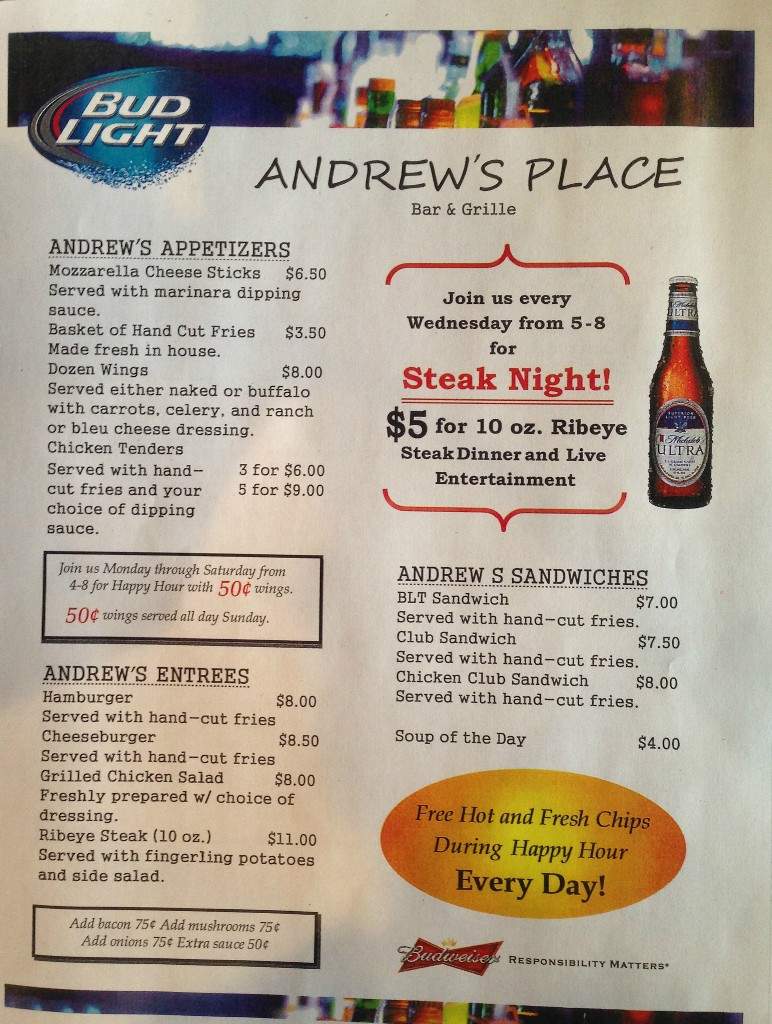 BUD
LIGHT
ANDREW'S PLACE
Bar & Grille
ANDREW'S APPETIZERS
Mozzarella Cheese Sticks $6.50
Served with marinara dipping
sauce.
Basket of Hand Cut Fries $3.50
Made fresh in house.
Dozen Wings $8.00
Served either naked or buffalo
with carrots, celery, and ranch
or bleu cheese dressing.
Chicken Tenders
Served with hand- 3 for $6.00
cut fries and your 5 for $9.00
choice of dipping
sauce.
Join us Monday through Saturday from
4-8 for Happy Hour with 50¢ wings.
50¢ wings served all day Sunday.
ANDREW'S ENTREES
Hamburger $8.00
Served with hand-cut fries
Cheeseburger $8.50
Served with hand-cut fries
Grilled Chicken Salad $8.00
Freshly prepared w/ choice of
dressing.
Ribeye Steak (10 oz.) $11.00
Served with fingerling potatoes
and side salad.
Add bacon 75¢ Add mushrooms 75¢
Add onions 75¢ Extra sauce 50¢
Join us every
Wednesday from 5-8
for
Steak Night!
$5 for 10 oz. Ribeye
Steak Dinner and Live
Entertainment
ULTRA
SUPERIOR
LIGHT BEER
Michelob
ULTRA
ANDREW S SANDWICHES
BLT Sandwich $7.00
Served with hand-cut fries.
Club Sandwich $7.50
Served with hand-cut fries.
Chicken Club Sandwich $8.00
Served with hand-cut fries.
Soup of the Day $4.00
Free Hot and Fresh Chips
During Happy Hour
Every Day!
Budweiser RESPONSIBILITY MATTERS®